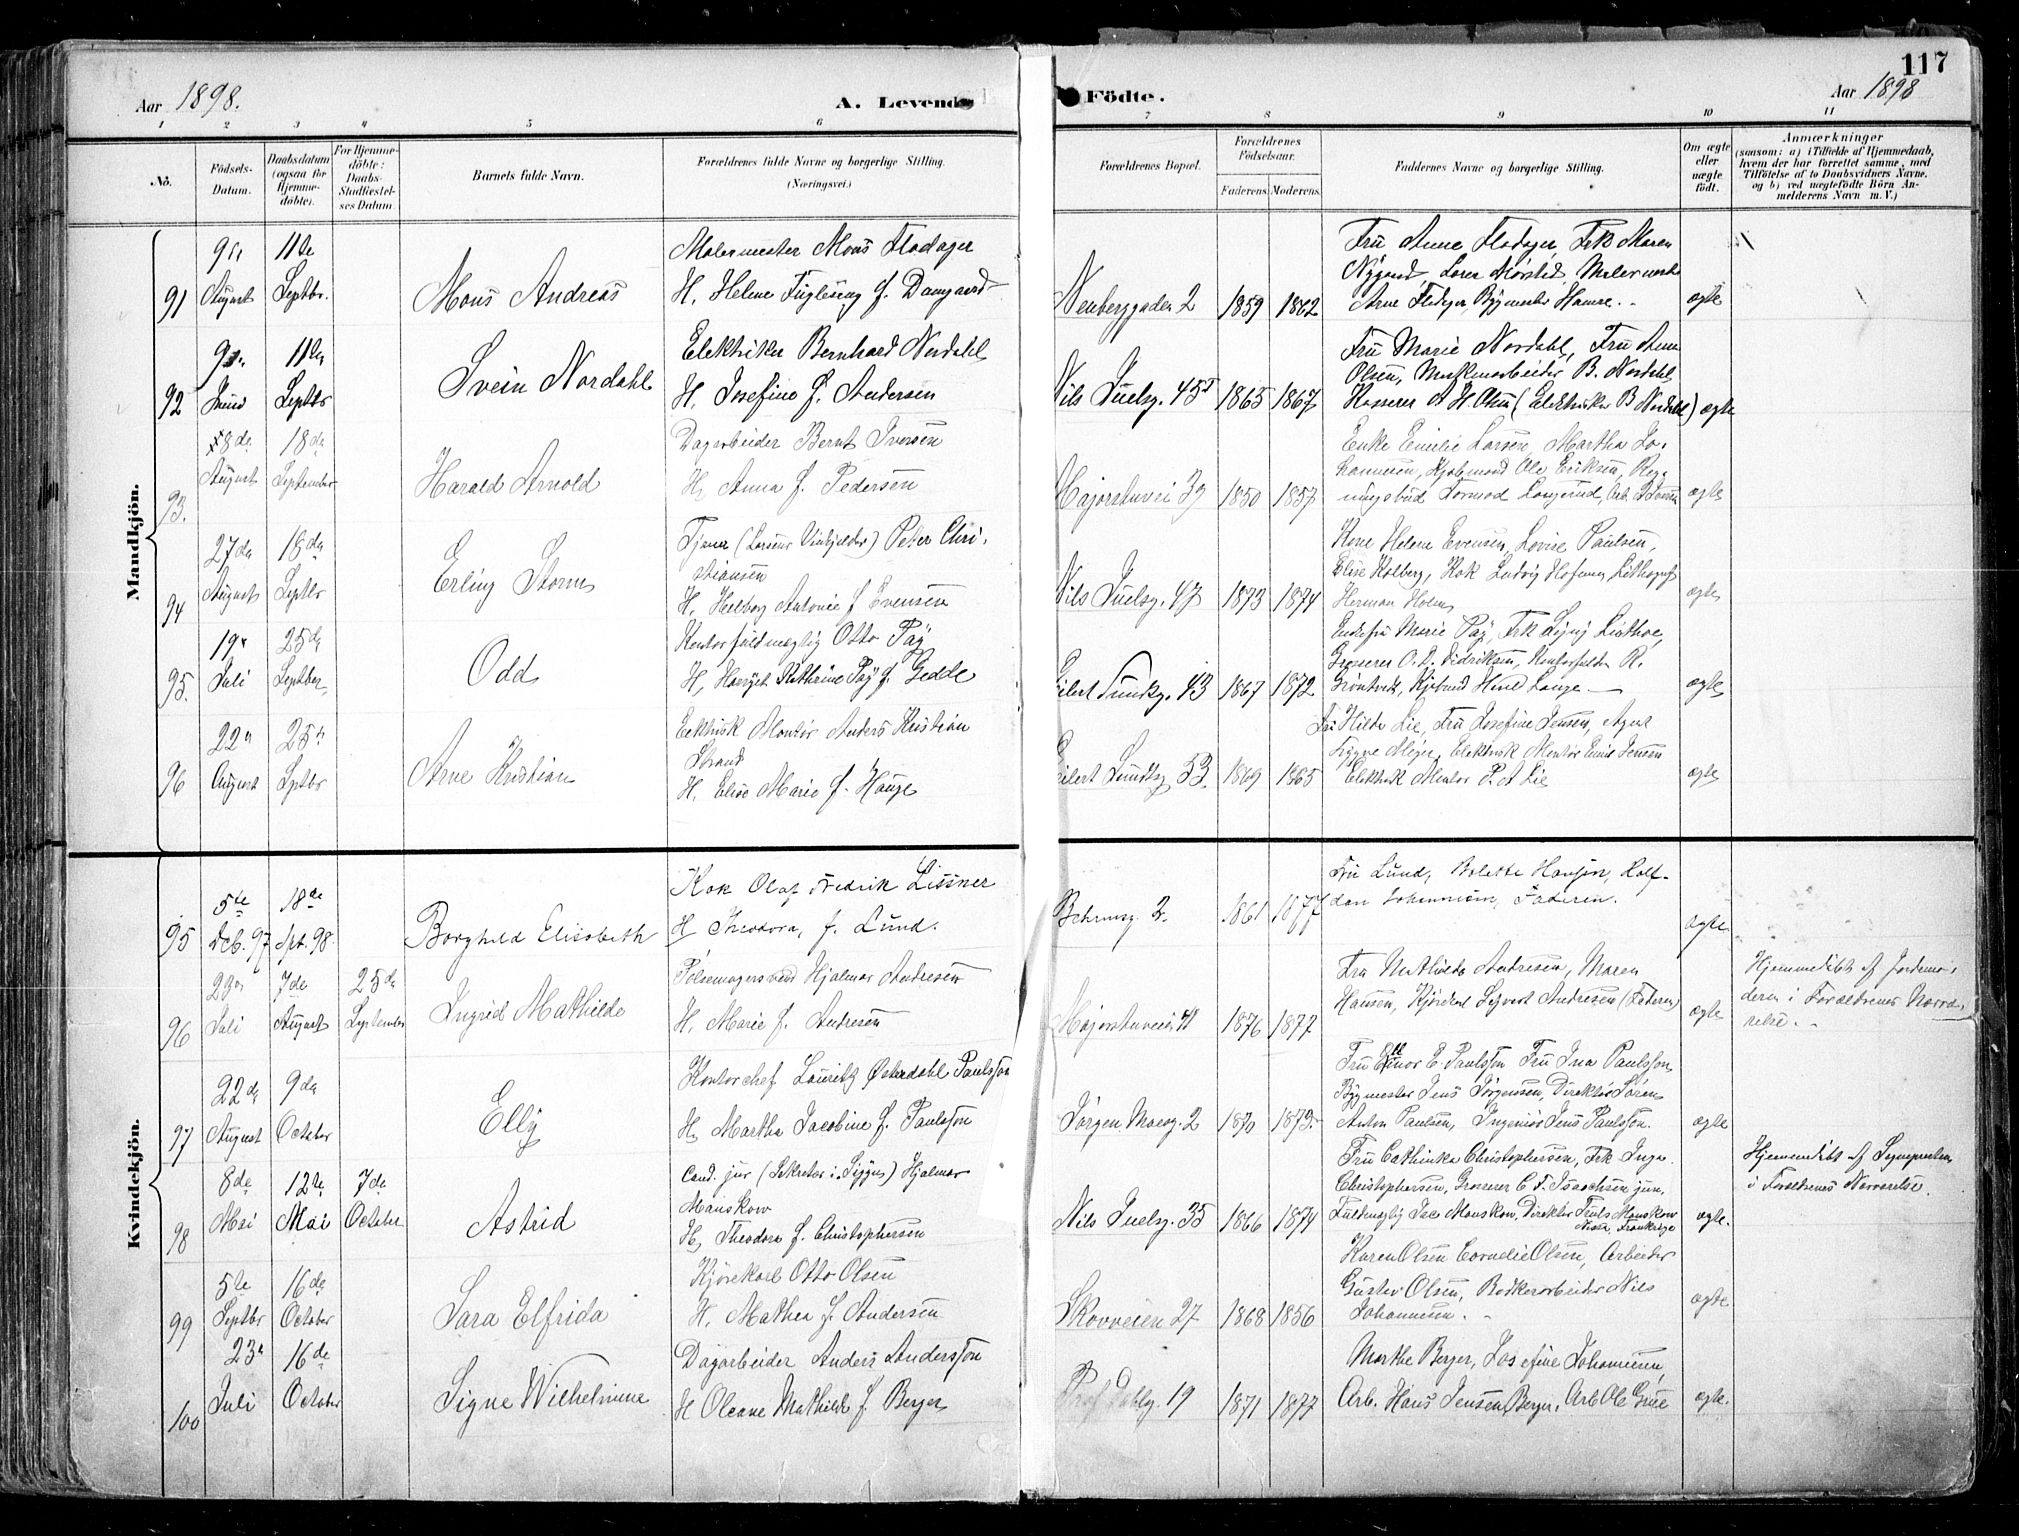 117
Aar 1898.
A. Levende
Födte.
Aar 1898
1 2 3 4 5 6 7 8 9 10 11
No.
Födsels-
Datum.
Daabsdatum
(ogsaa for
Hjemme-
döbte).
For Hjemme-
döbte:
Daabs-
Stadfæstel-
ses Datum.
Barnets fulde Navn.
Forældrenes fulde Navne og borgerlige Stilling.
(Næringsvei.)
Forældrenes Bopæl.
Forældrenes
Födselsaar.
Faderens. Moderens.
Faddernes Navne og borgerlige Stilling.
Om ægte
eller
uægte
födt.
Anmærkninger
(saasom: a) i Tilfælde af Hjemmedaab,
hvem der har forrettet samme, med
Tilföielse af to Daabsvidners Navne,
og b) ved uægtefödte Börn An-
melderens Navn m. V.)
Mandkjön.
91
August
11te
Septbr.
Mons Andreas
Malermester Mons Fladager
H. Helene Fuglesang f. Damgaard
Neuberggaden 2
1859 1862
Fru Anne Fladager, Frk Maren
Nygaard,
Arne Fladager, Bygmester Hamre.
ægte
92
Juni
11te
Septbr
Svein Nordahl
Elektriker Bernhard Nordahl
H. Josefine f. Andersen
Nils Juelsg. 45
1865 1867
Fru Marie Nordahl, Fru Anna
Olsen, B. Nordahl
Kasserer A H. Olsen (Elektriker B Nordahl)
ægte
93.
8de
August
18de
September
Harald Arnold
Dagarbeider Bernt Iversen
H. Anna f. Pedersen
Majorstuvei 39
1850 1857
Enke Emilie Larsen, Martha Jo-
hannesen, Ole Eriksen,
ægte
94
27de
August
18de
Septbr
Erling Storm
Tjener (Larsens Vinkjelder) Peter Chri-
stiansen
H. Helborg Antonie f Evensen
Nils Juelsg. 47
1873 1874
Kone Helene Evensen, Lovise Paulsen,
Elise Kolberg, Kok Ludvig Hofman, Lithograf
Herman Holm
ægte
95.
19
Juli
25de
Septber
Odd
Kontorfuldmægtig Otto Pay
H. Kathrine Pay f. Gedde
Eilert Sundtsg. 43
1867 1872
Enkefru Marie Pay, Frk
Grosserer O. D. Didriksen, R.
ægte
96
22
August
25
Septbr
Arne Kristian
Elektrisk Montør Anders Kristian
Strand
H. Elise Marie f. Hauge
Eilert Sundtsg 53.
1869 1865
Fru Hilda Lie, Fru Josefine Jensen, Agent
Elektrisk Montør Emil Jensen
Elektrisk Montør P. A Lie
ægte
Kvindekjön.
95
5te
Dcb. 97
18de
Spt. 98.
Borghild Elisabeth
Kok Olaf Fredrik Lissner
H Theodora, f. Lund.
Behrensg. 2.
1861 1877
Fru Lund, Bolette Hansen, Half-
dan Johannesen, Faderen.
ægte
96
Juli
7de
August
25de
September
Ingrid Mathilde
Pølsemagersvend Hjalmar Andresen
H. Marie f. Andresen
Majorstuveien 41
1876 1877
Fru Mathilde Andresen, Maren
Hansen, Andresen (Faderen)
ægte
Hjemmedøbt af Jordemo-
deren i Forældrenes Nærvæ-
relse.
97
22de
August
9de
October
Elly
Kontorchef Lauritz Østerdahl Paulsson
H. Martha Jacobine f. Paulsson
Jørgen Moesg. 2
1870 1873
Fru Ellinor E. Paulsson Fru Ina Paulsson,
Bygmester Jens Jørgensen, Direktør Søren
Anton Paulsen, Ingeniør Jens Paulsson.
ægte
98
8de
Mai
12te
Mai
7de
October
Astrid
Cand. jur (Sekretær i Hjalmar
Manskow
H. Theodora f. Christophersen
Nils Juelsg. 35
1866 1874
Fru Cathinka Christophersen, Frk Inga
Christophersen, Grosserer C F. Isaachsen jun,
Fuldmægtig Manskow, Direktør Truls Manskow
ægte.
Hjemmedøbt af Sognepresten
i Forældrenes Nærværelse.
99
5te
Septbr
16de
October
Sara Elfrida
Kjørekarl Otto Olsen
H. Mathea f. Andersen
Skovveien 27
1868 1856
Karen Olsen Cornelie Olsen, Arbeider
Gustav Olsen, Bødkerarbeider Nils
Johannesen.
ægte
100
23
Juli
16de
October
Signe Wilhelmine
Dagarbeider Anders Andersson
H Oleane Mathilde f Berger
Prof Dahlsg. 19
1871 1877
Marthe Berger, Josefine Johannesen,
Arb. Hans Jensen Berger, Arb Ole Grue
ægte.